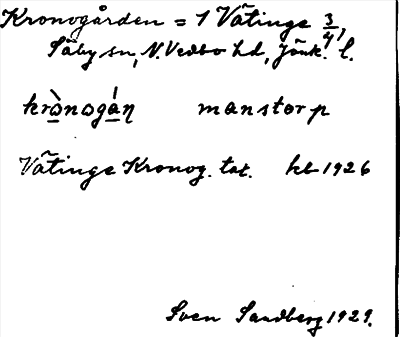 Kronogården = 1 Vätinge 3/4,
Säby sn, N. Vedbo hd, Jönk. l.
krònogá̱ṉ manstorp
Vätinge Kronog. tat. kb 1926
Sven Sandberg 1929.